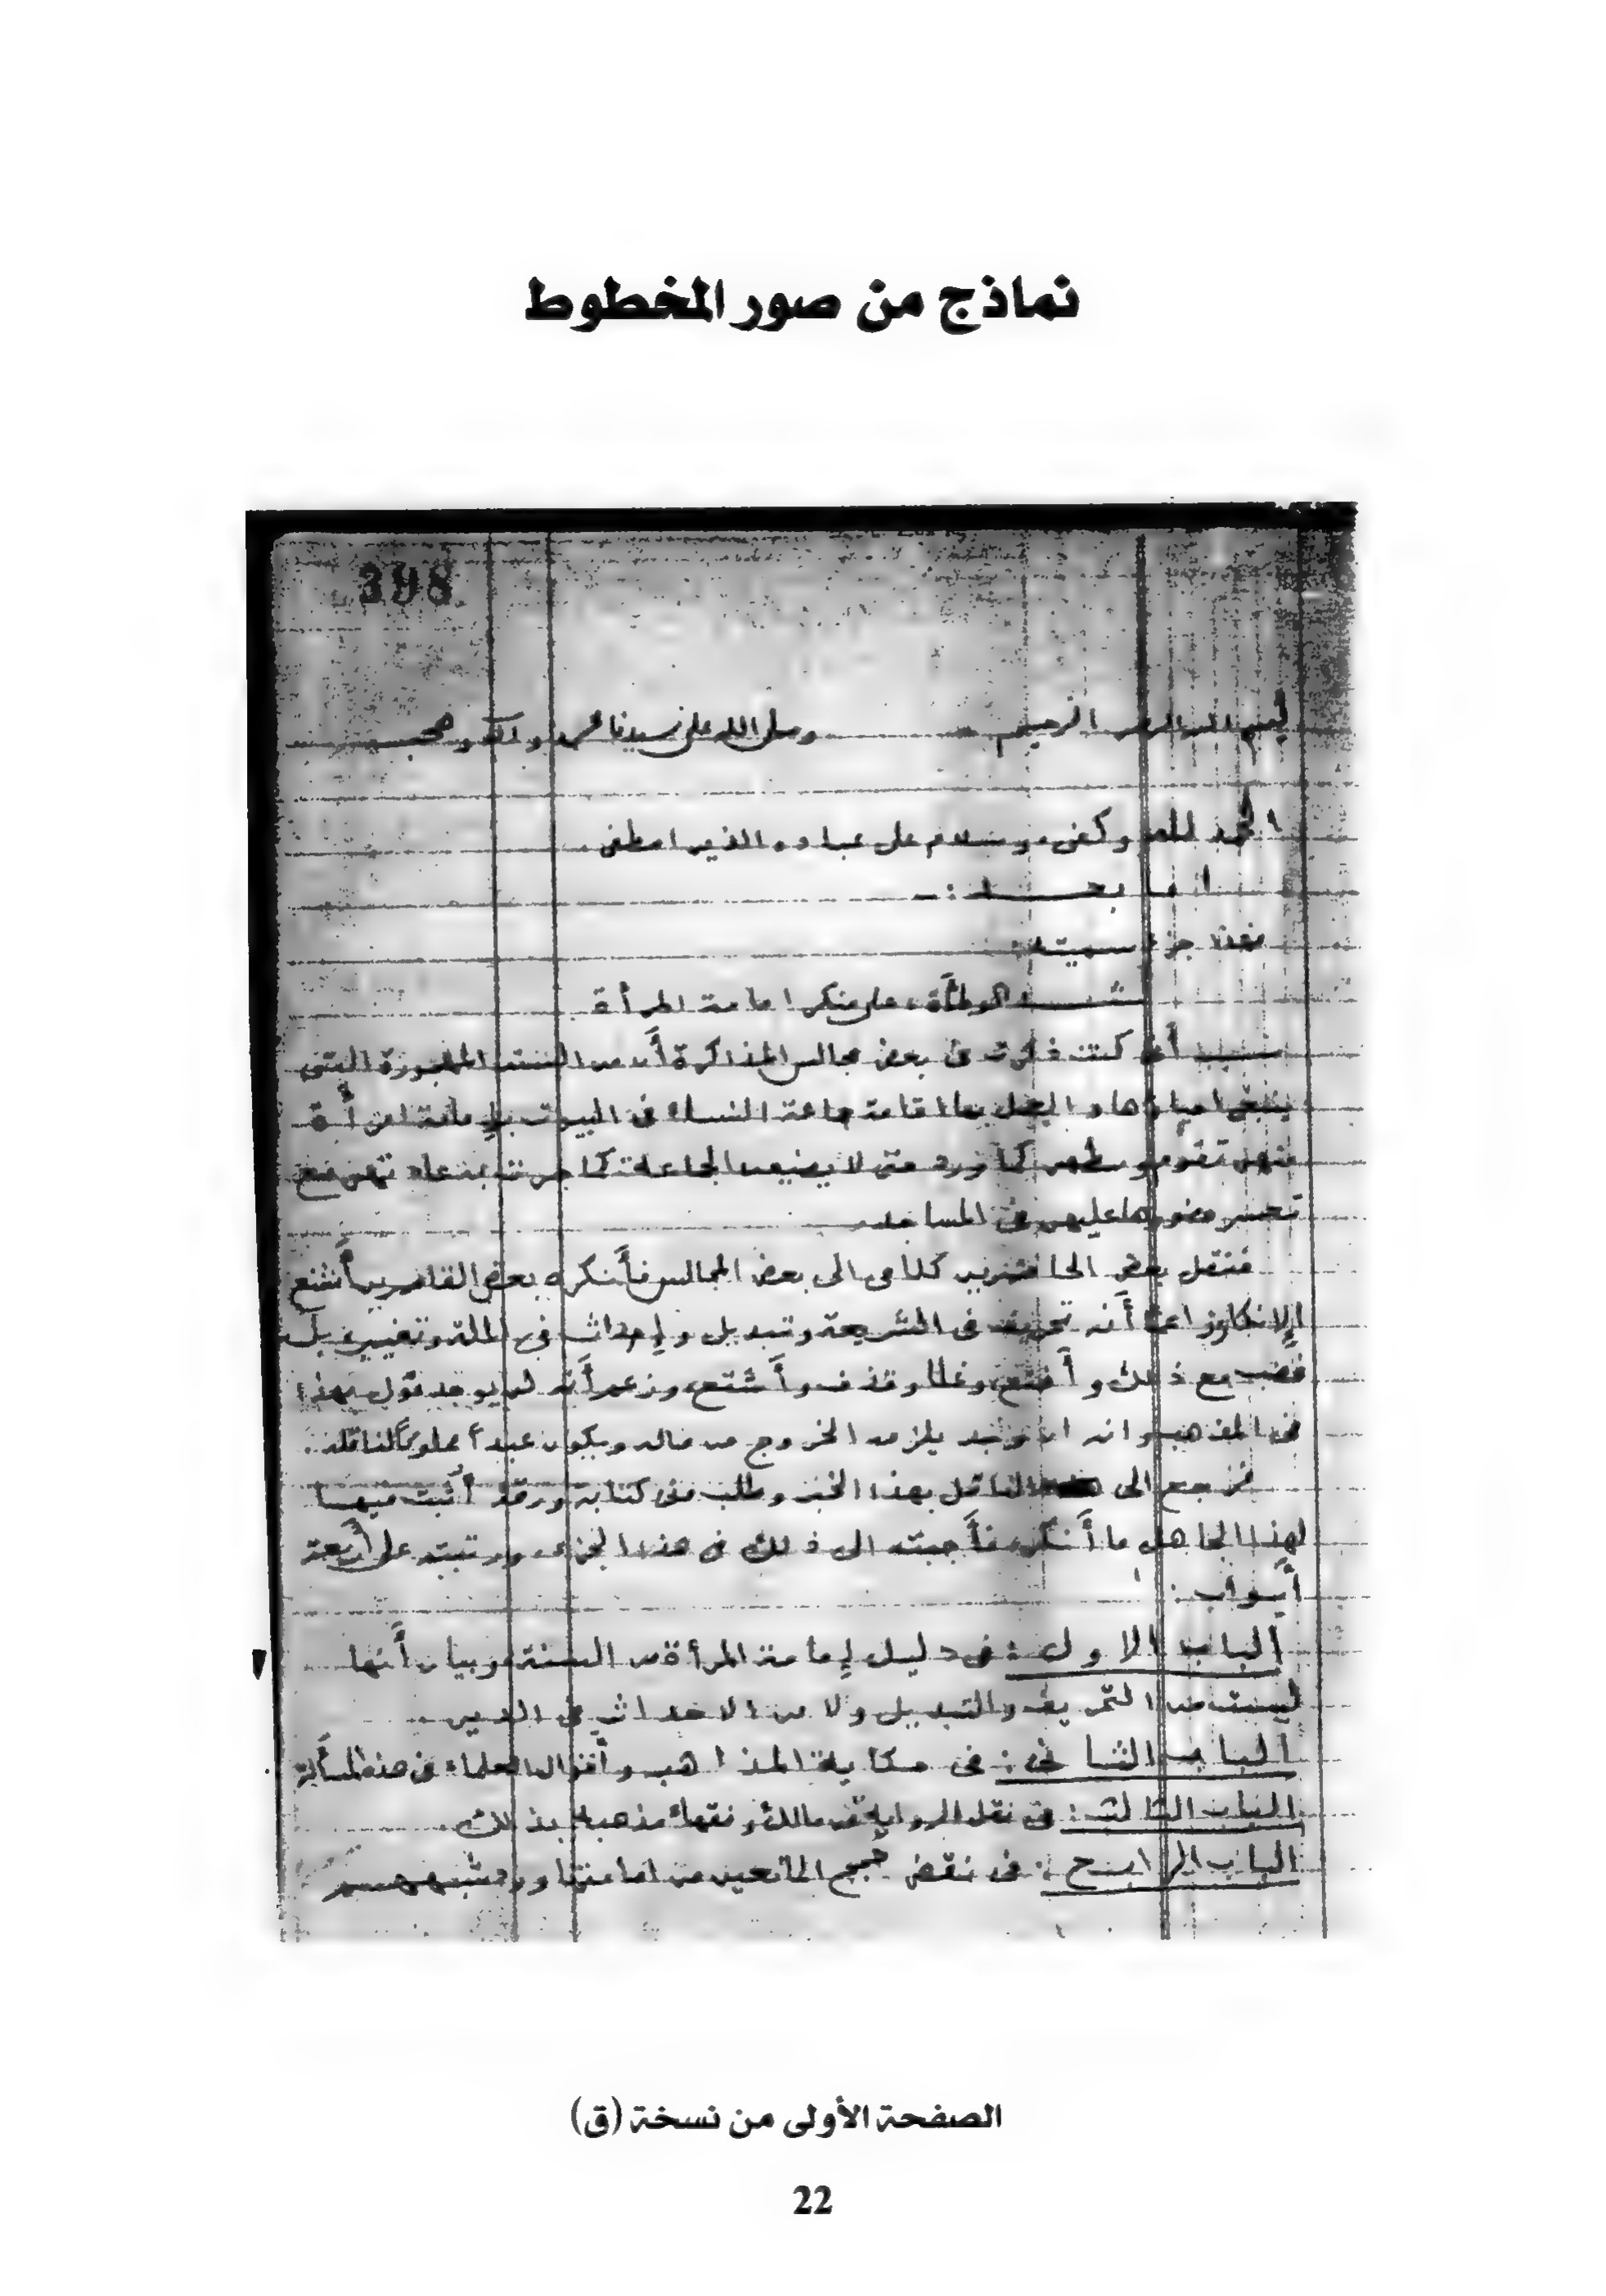 نماذج من صور المخطوط
398
بسم الله الرحمن الرحيم وصلى الله على سيدنا محمد وآله وصحبه
الحمد لله وكفى، وسلام على عباده الذين اصطفى
اما بعد :-
فهذا جزء سميته:
شد الوطأة، على منكر امامة المرأة
سببه أني كنت ذكرت فى بعض مجالس المذاكرة أن من السنة المهجورة التى
ينبغي احياؤها والعمل بها اقامة جماعة النساء فى البيوت بإمامة امرأة
منهن تقوم وسطهن كما ورد حتى لا يضيعن الجماعة كما جرت به عادتهن مع
تعسر حضورها عليهن فى المساجد.
فنقل بعض الحاضرين كلامى الى بعض المجالس فأنكره بعض القاصرين أشنع
الإنكار زاعما أنه تحريف فى الشريعة وتبديل وإحداث فى الملة وتغيير، بل
مع ذلك و وغلا وقذف وأشنع، وزعم أنه لم يوجد قول بهذا
فى المذهب وانه ان وجد يلزمه الخروج من ماله ويكون عبدا مملوكا لناقله.
فرجع الى الناقل بهذا الخبر وطلب منى كتابة ورقة أثبت فيها
لهذا الجاهل ما أنكره، فأجبته الى ذلك فى هذا الجزء، ورتبته على أربعة
أبواب:
الباب الاول: فى دليل إمامة المرأة من السنة، وبيان أنها
ليست من التحريف والتبديل ولا من الاحداث فى الدين.
الباب الثانى: فى حكاية المذاهب وأقوال العلماء فى هذه المسألة
الباب الثالث: فى نقل الرواية عن مالك وفقهاء مذهبه بذلك.
الباب الرابع: فى نقض حجج المانعين من امامتها ورد شبههم
الصفحة الأولى من نسخة (ق)
22